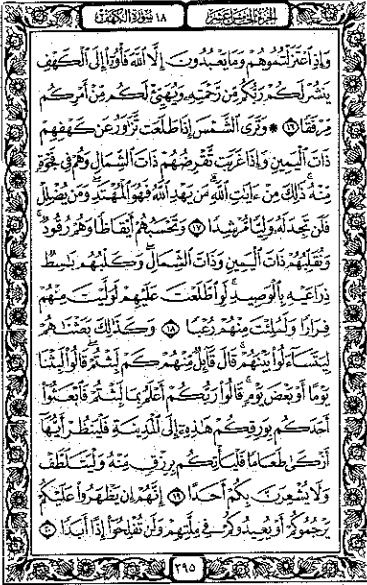 الجزء الخامس عشر ١٨ سورة الكهف
وَإِذِ اعْتَزَلْتُمُوهُمْ وَمَا يَعْبُدُونَ إِلَّا اللَّهَ فَأْوُوا إِلَى الْكَهْفِ
يَنشُرْ لَكُمْ رَبُّكُم مِّن رَّحْمَتِهِ وَيُهَيِّئْ لَكُم مِّنْ أَمْرِكُم
مِّرْفَقًا ١٦ * وَتَرَى الشَّمْسَ إِذَا طَلَعَت تَّزَاوَرُ عَن كَهْفِهِمْ
ذَاتَ الْيَمِينِ وَإِذَا غَرَبَت تَّقْرِضُهُمْ ذَاتَ الشِّمَالِ وَهُمْ فِي فَجْوَةٍ
مِّنْهُ ذَٰلِكَ مِنْ ءَايَٰتِ اللَّهِ مَن يَهْدِ اللَّهُ فَهُوَ الْمُهْتَدِ وَمَن يُضْلِلْ
فَلَن تَجِدَ لَهُ وَلِيًّا مُّرْشِدًا ١٧ وَتَحْسَبُهُمْ أَيْقَاظًا وَهُمْ رُقُودٌ
وَنُقَلِّبُهُمْ ذَاتَ الْيَمِينِ وَذَاتَ الشِّمَالِ وَكَلْبُهُم بَٰسِطٌ
ذِرَاعَيْهِ بِالْوَصِيدِ لَوِ اطَّلَعْتَ عَلَيْهِمْ لَوَلَّيْتَ مِنْهُمْ
فِرَارًا وَلَمُلِئْتَ مِنْهُمْ رُعْبًا ١٨ وَكَذَٰلِكَ بَعَثْنَٰهُمْ
لِيَتَسَاءَلُوا بَيْنَهُمْ قَالَ قَائِلٌ مِّنْهُمْ كَمْ لَبِثْتُمْ قَالُوا لَبِثْنَا
يَوْمًا أَوْ بَعْضَ يَوْمٍ قَالُوا رَبُّكُمْ أَعْلَمُ بِمَا لَبِثْتُمْ فَابْعَثُوا
أَحَدَكُم بِوَرِقِكُمْ هَٰذِهِ إِلَى الْمَدِينَةِ فَلْيَنظُرْ أَيُّهَا
أَزْكَىٰ طَعَامًا فَلْيَأْتِكُم بِرِزْقٍ مِّنْهُ وَلْيَتَلَطَّفْ
وَلَا يُشْعِرَنَّ بِكُمْ أَحَدًا ١٩ إِنَّهُمْ إِن يَظْهَرُوا عَلَيْكُمْ
يَرْجُمُوكُمْ أَوْ يُعِيدُوكُمْ فِي مِلَّتِهِمْ وَلَن تُفْلِحُوا إِذًا أَبَدًا ٢٠
٢٩٥